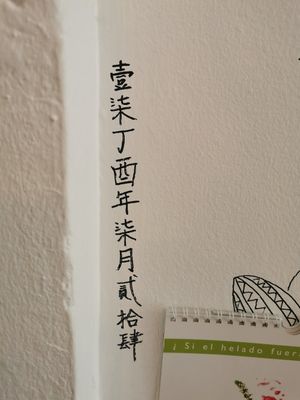 壹柒丁酉年柒月貳拾肆
¡ Si el helado fuer